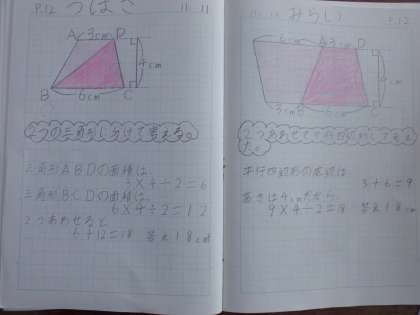 P.12 つばさ 11.11
A 3cm D
4cm
B 6cm C
2つの三角形に分けて考える。
三角形ABDの面積は、
3×4÷2=6
三角形BCDの面積は、
6×4÷2=12
2つあわせると
6+12=18 答え18cm²
11.11 みらい P.12
6cm A 3cm D
4cm
3cm B 6cm C
平行四辺形の底辺は
3+6=9
高さは4cmだから、
9×4÷2=18 答え18cm²